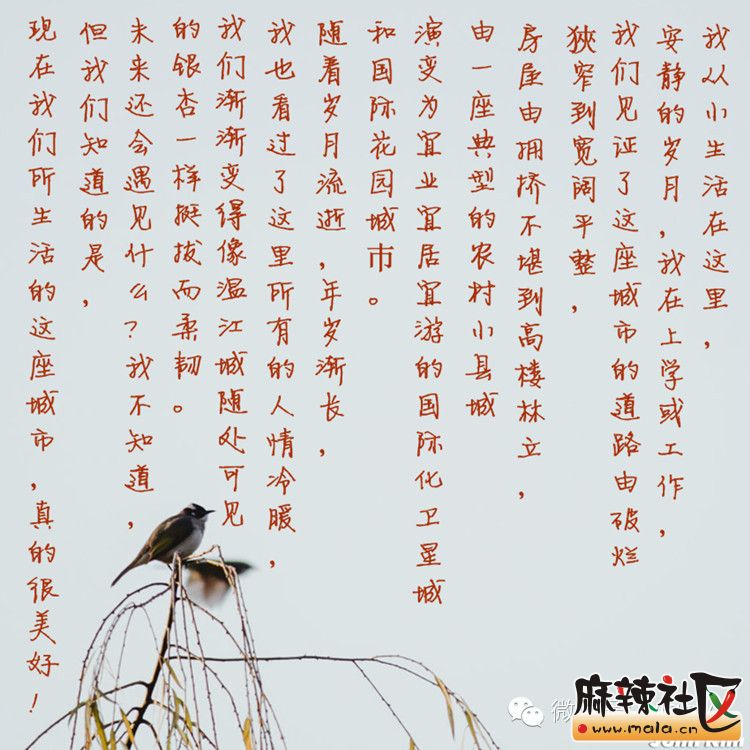 我从小生活在这里，
安静的岁月，我在上学或工作，
我们见证了这座城市的道路由破烂
狭窄到宽阔平整，
房屋由拥挤不堪到高楼林立，
由一座典型的农村小县城
演变为宜业宜居宜游的国际化卫星城
和国际花园城市。
随着岁月流逝，年岁渐长，
我也看过了这里所有的人情冷暖，
我们渐渐变得像温江城随处可见
的银杏一样挺拔而柔韧。
未来还会遇见什么？我不知道，
但我们知道的是，
现在我们所生活的这座城市，真的很美好！
微
麻辣社区
www.mala.cn